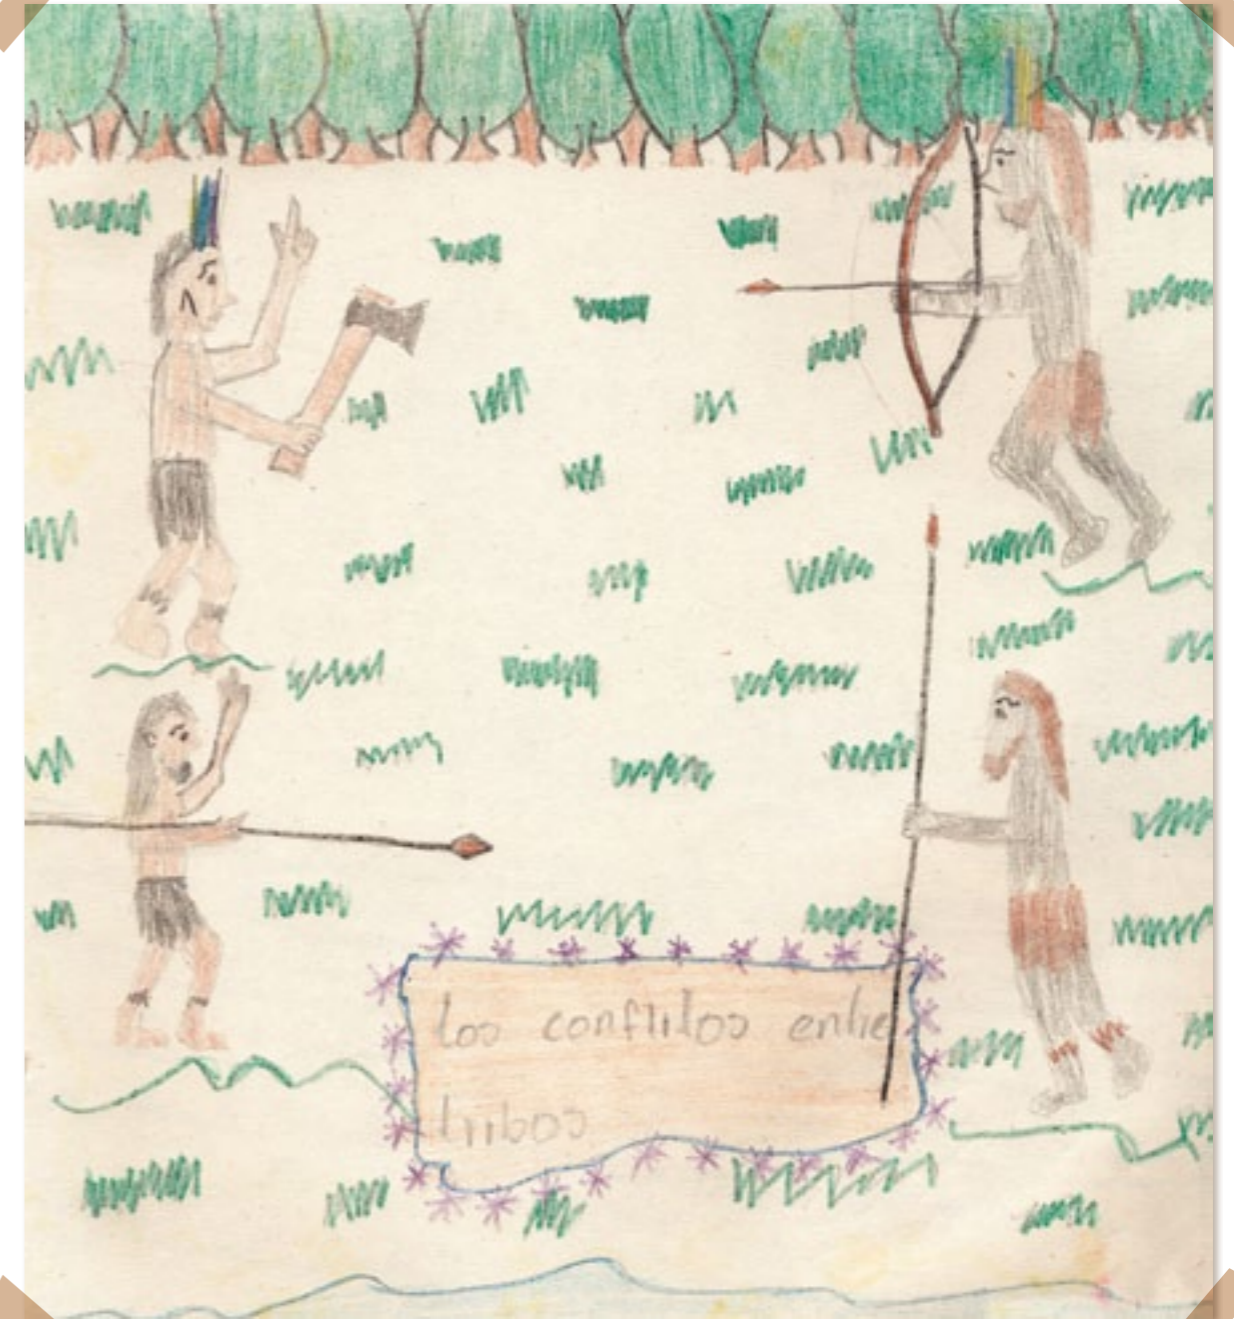 los conflitos entre
tribos